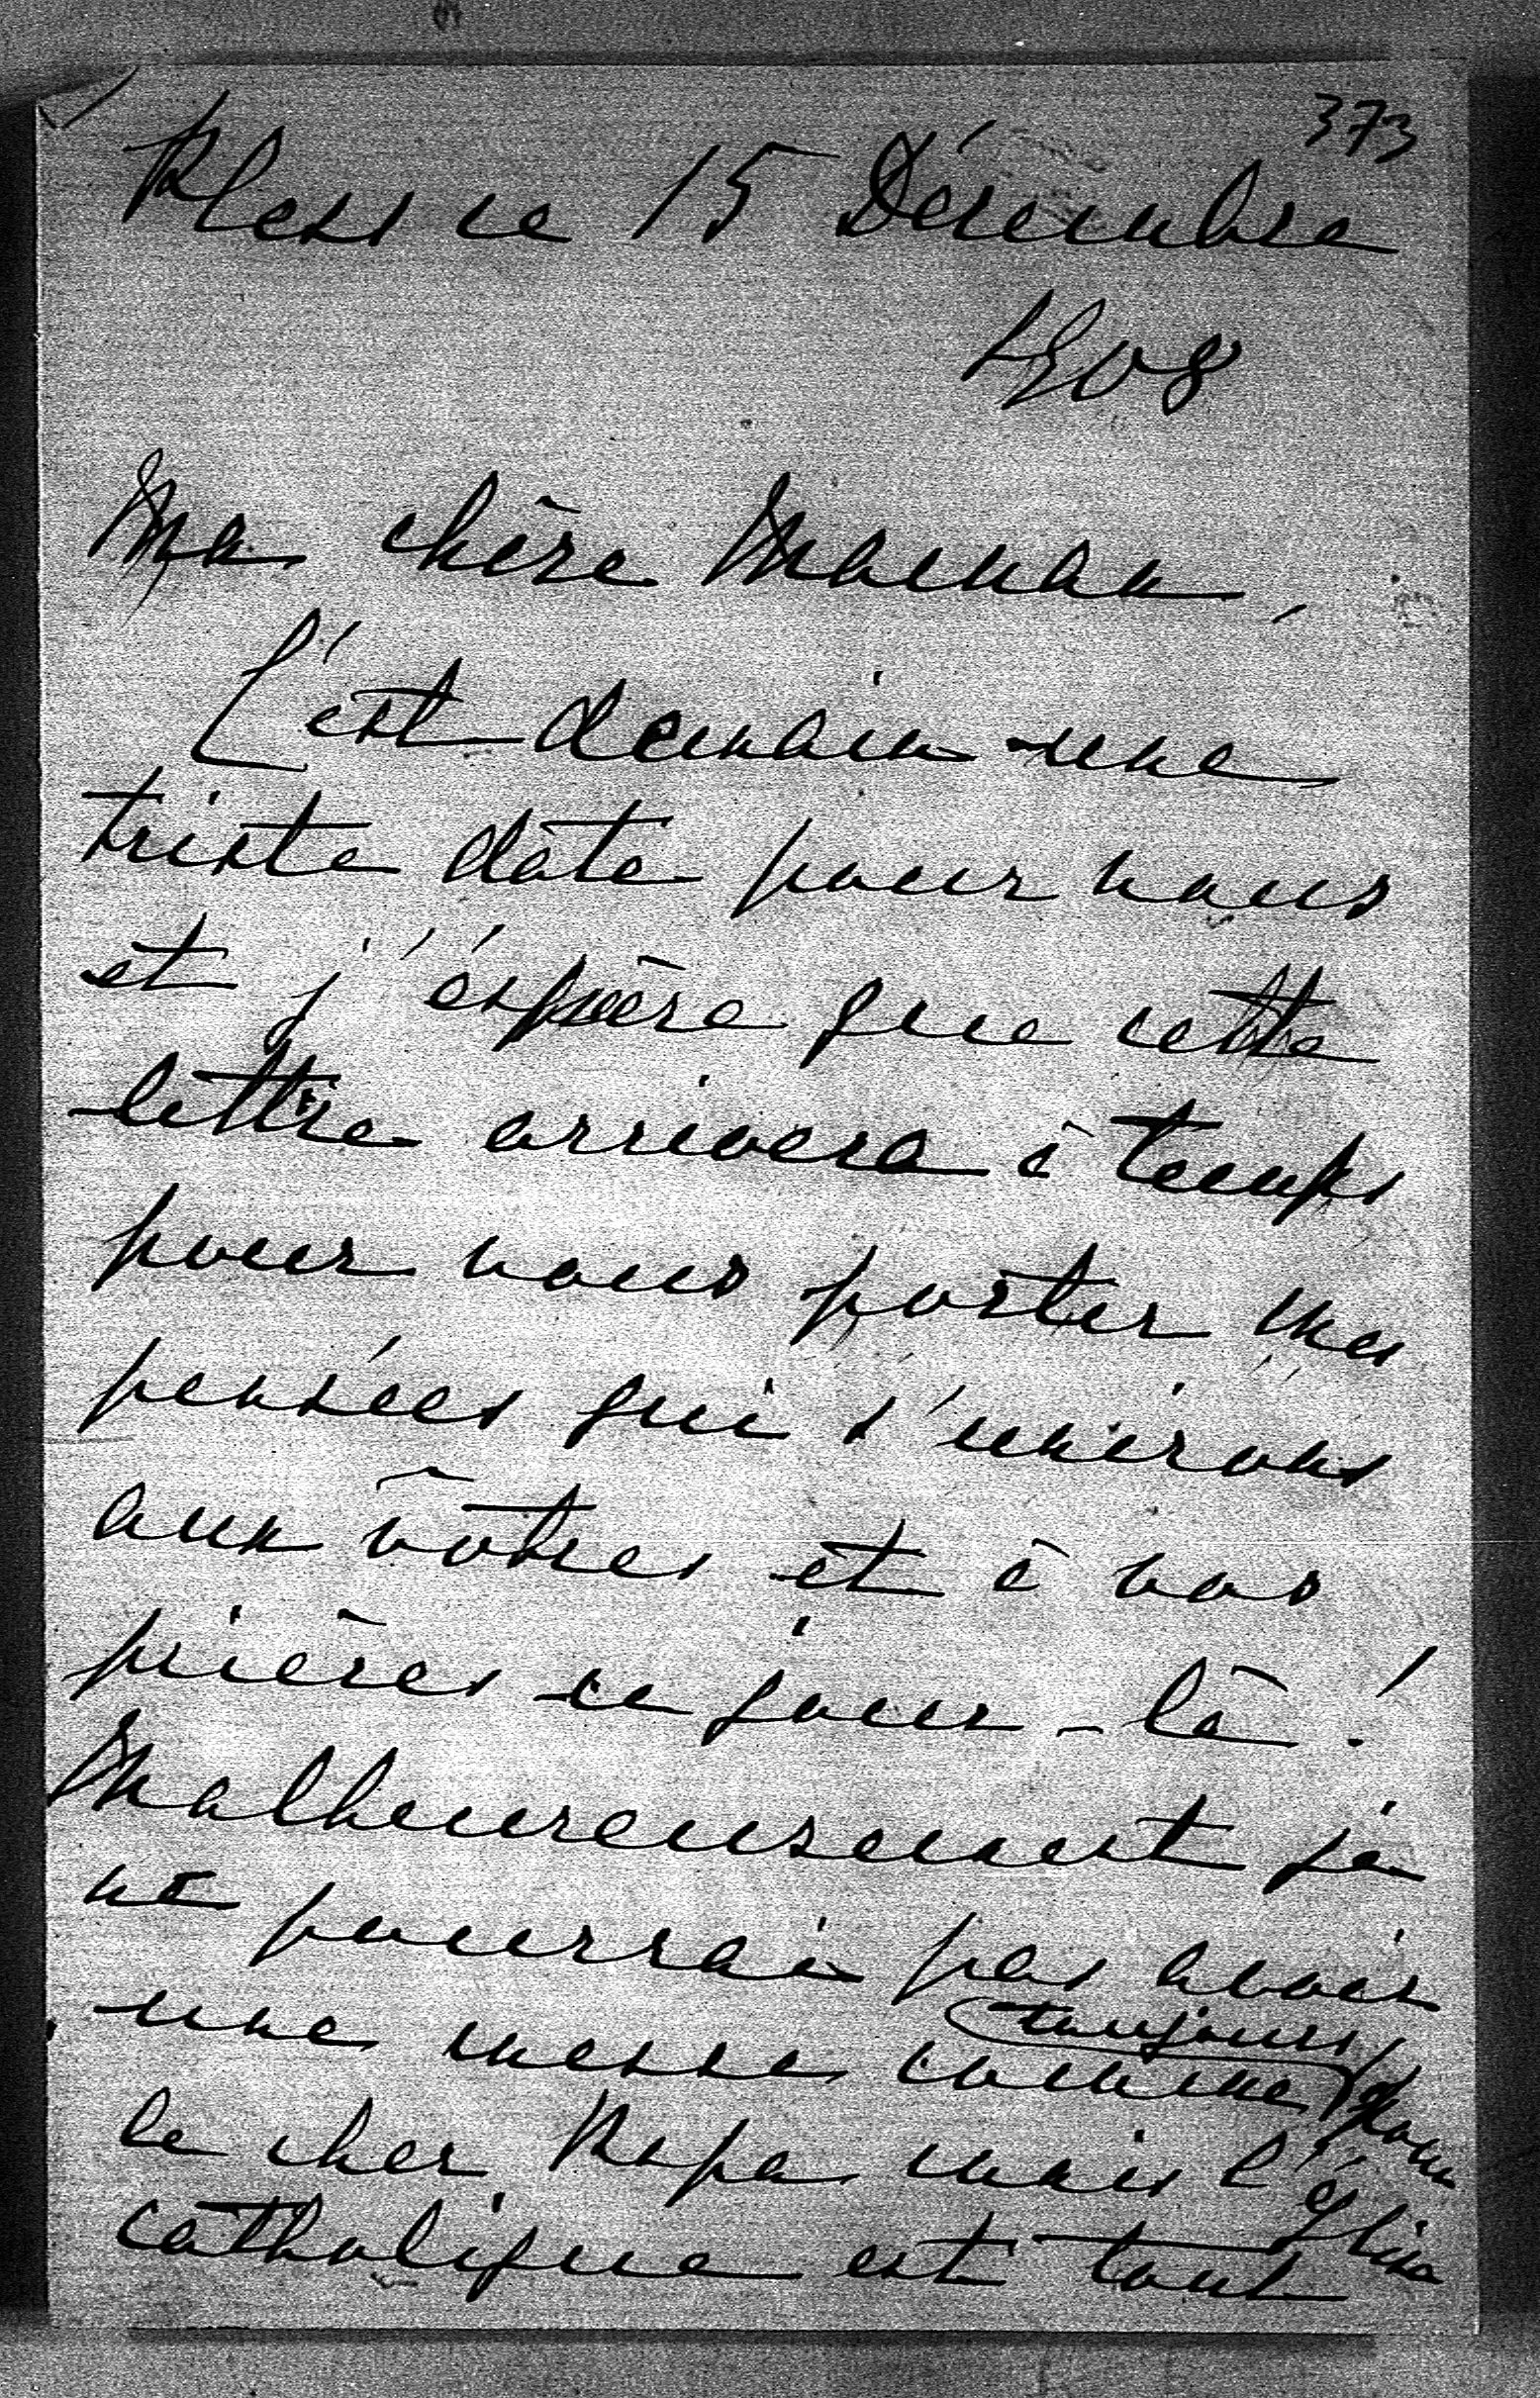 373
Pless ce 15 Décembre
1908
Ma chère Maman,
C'est demain une
triste date pour nous
et j'éspère que cette
lettre arrivera à temps
pour vous porter mes
pensées qui s'unirons
aux vôtres et à vos
prières ce jour-là!
Malheureusement je
ne pourrai pas avoir
toujours
une messe comme pour
le cher Papa mais l'église
catholique est tout